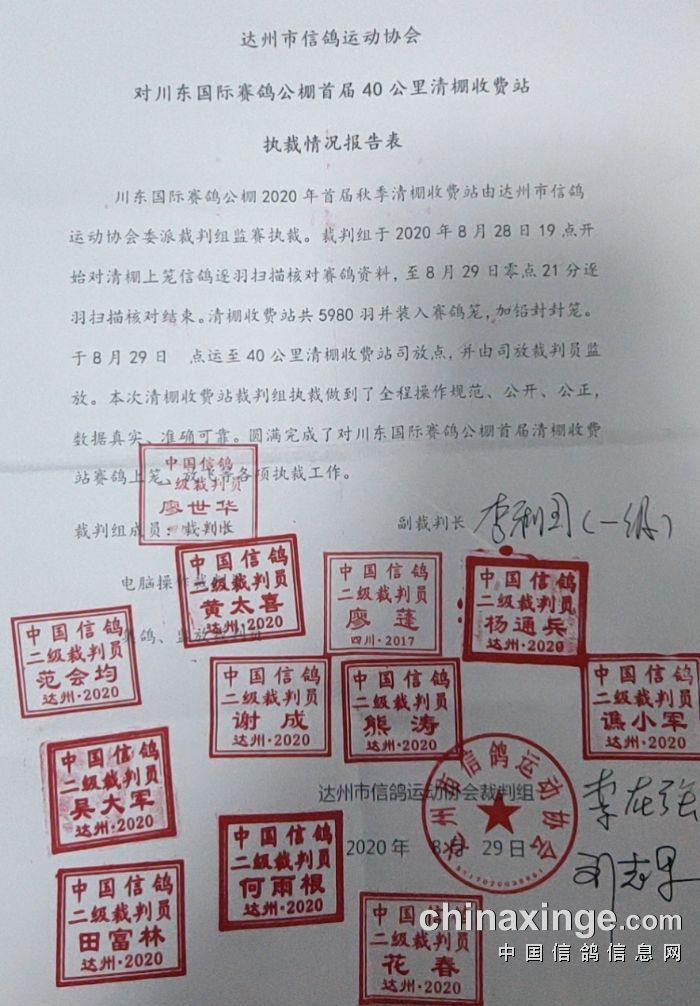 达州市信鸽运动协会
对川东国际赛鸽公棚首届40公里清棚收费站
执裁情况报告表
川东国际赛鸽公棚2020年首届秋季清棚收费站由达州市信鸽
运动协会委派裁判组监赛执裁。裁判组于2020年8月28日19点开
始对清棚上笼信鸽逐羽扫描核对赛鸽资料，至8月29日零点21分逐
羽扫描核对结束。清棚收费站共5980羽并装入赛鸽笼，加铅封封笼。
于8月29日 点运至40公里清棚收费站司放点，并由司放裁判员监
放。本次清棚收费站裁判组执裁做到了全程操作规范、公开、公正，
数据真实、准确可靠。圆满完成了对川东国际赛鸽公棚首届清棚收费
站赛鸽上笼、放飞等各项执裁工作。
中国信鸽
一级裁判员
廖世华
裁判组成员：裁判长
副裁判长 李利国（一级）
电脑操作裁判
中国信鸽
二级裁判员
黄太喜
达州·2020
中国信鸽
二级裁判员
廖 蓬
四川·2017
中国信鸽
二级裁判员
杨通兵
达州·2020
集鸽、监放裁判员
中国信鸽
二级裁判员
范会均
达州·2020
中国信鸽
二级裁判员
谢 成
达州·2020
中国信鸽
二级裁判员
熊 涛
达州·2020
中国信鸽
二级裁判员
谯小军
达州·2020
中国信鸽
二级裁判员
吴大军
达州·2020
达州市信鸽运动协会裁判组
达州市信鸽运动协会
2020年 8月 29日
李在强
中国信鸽
二级裁判员
何雨根
达州·2020
中国信鸽
二级裁判员
田富林
达州·2020
中国信鸽
二级裁判员
花 春
达州·2020
chinaxinge.com
中国信鸽信息网